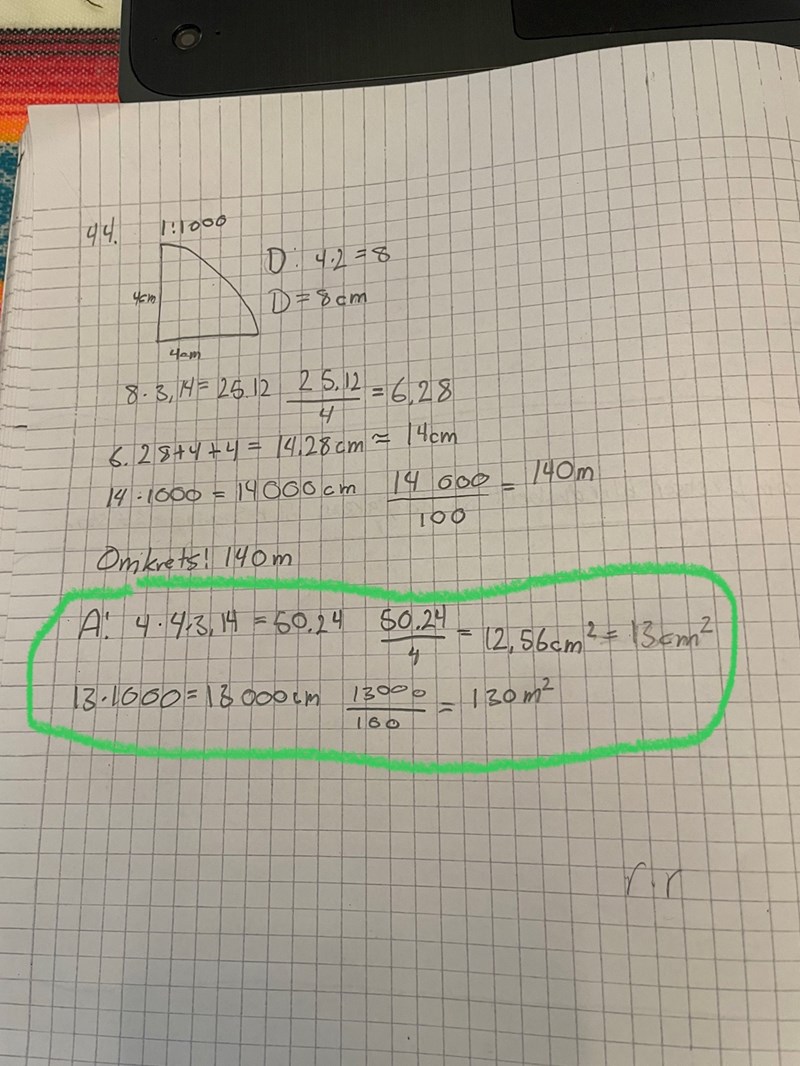 44. 1:1000
D: 4·2=8
4cm D=8cm
4cm
8·3,14=25.12 25,12/4=6,28
6.28+4+4=14,28cm≈14cm
14·1000=14000cm 14 000/100=140m
Omkrets: 140m
A: 4·4·3,14=50.24 50.24/4=12,56cm²=13cm²
13·1000=13 000cm 13000/100=130m²
r.r